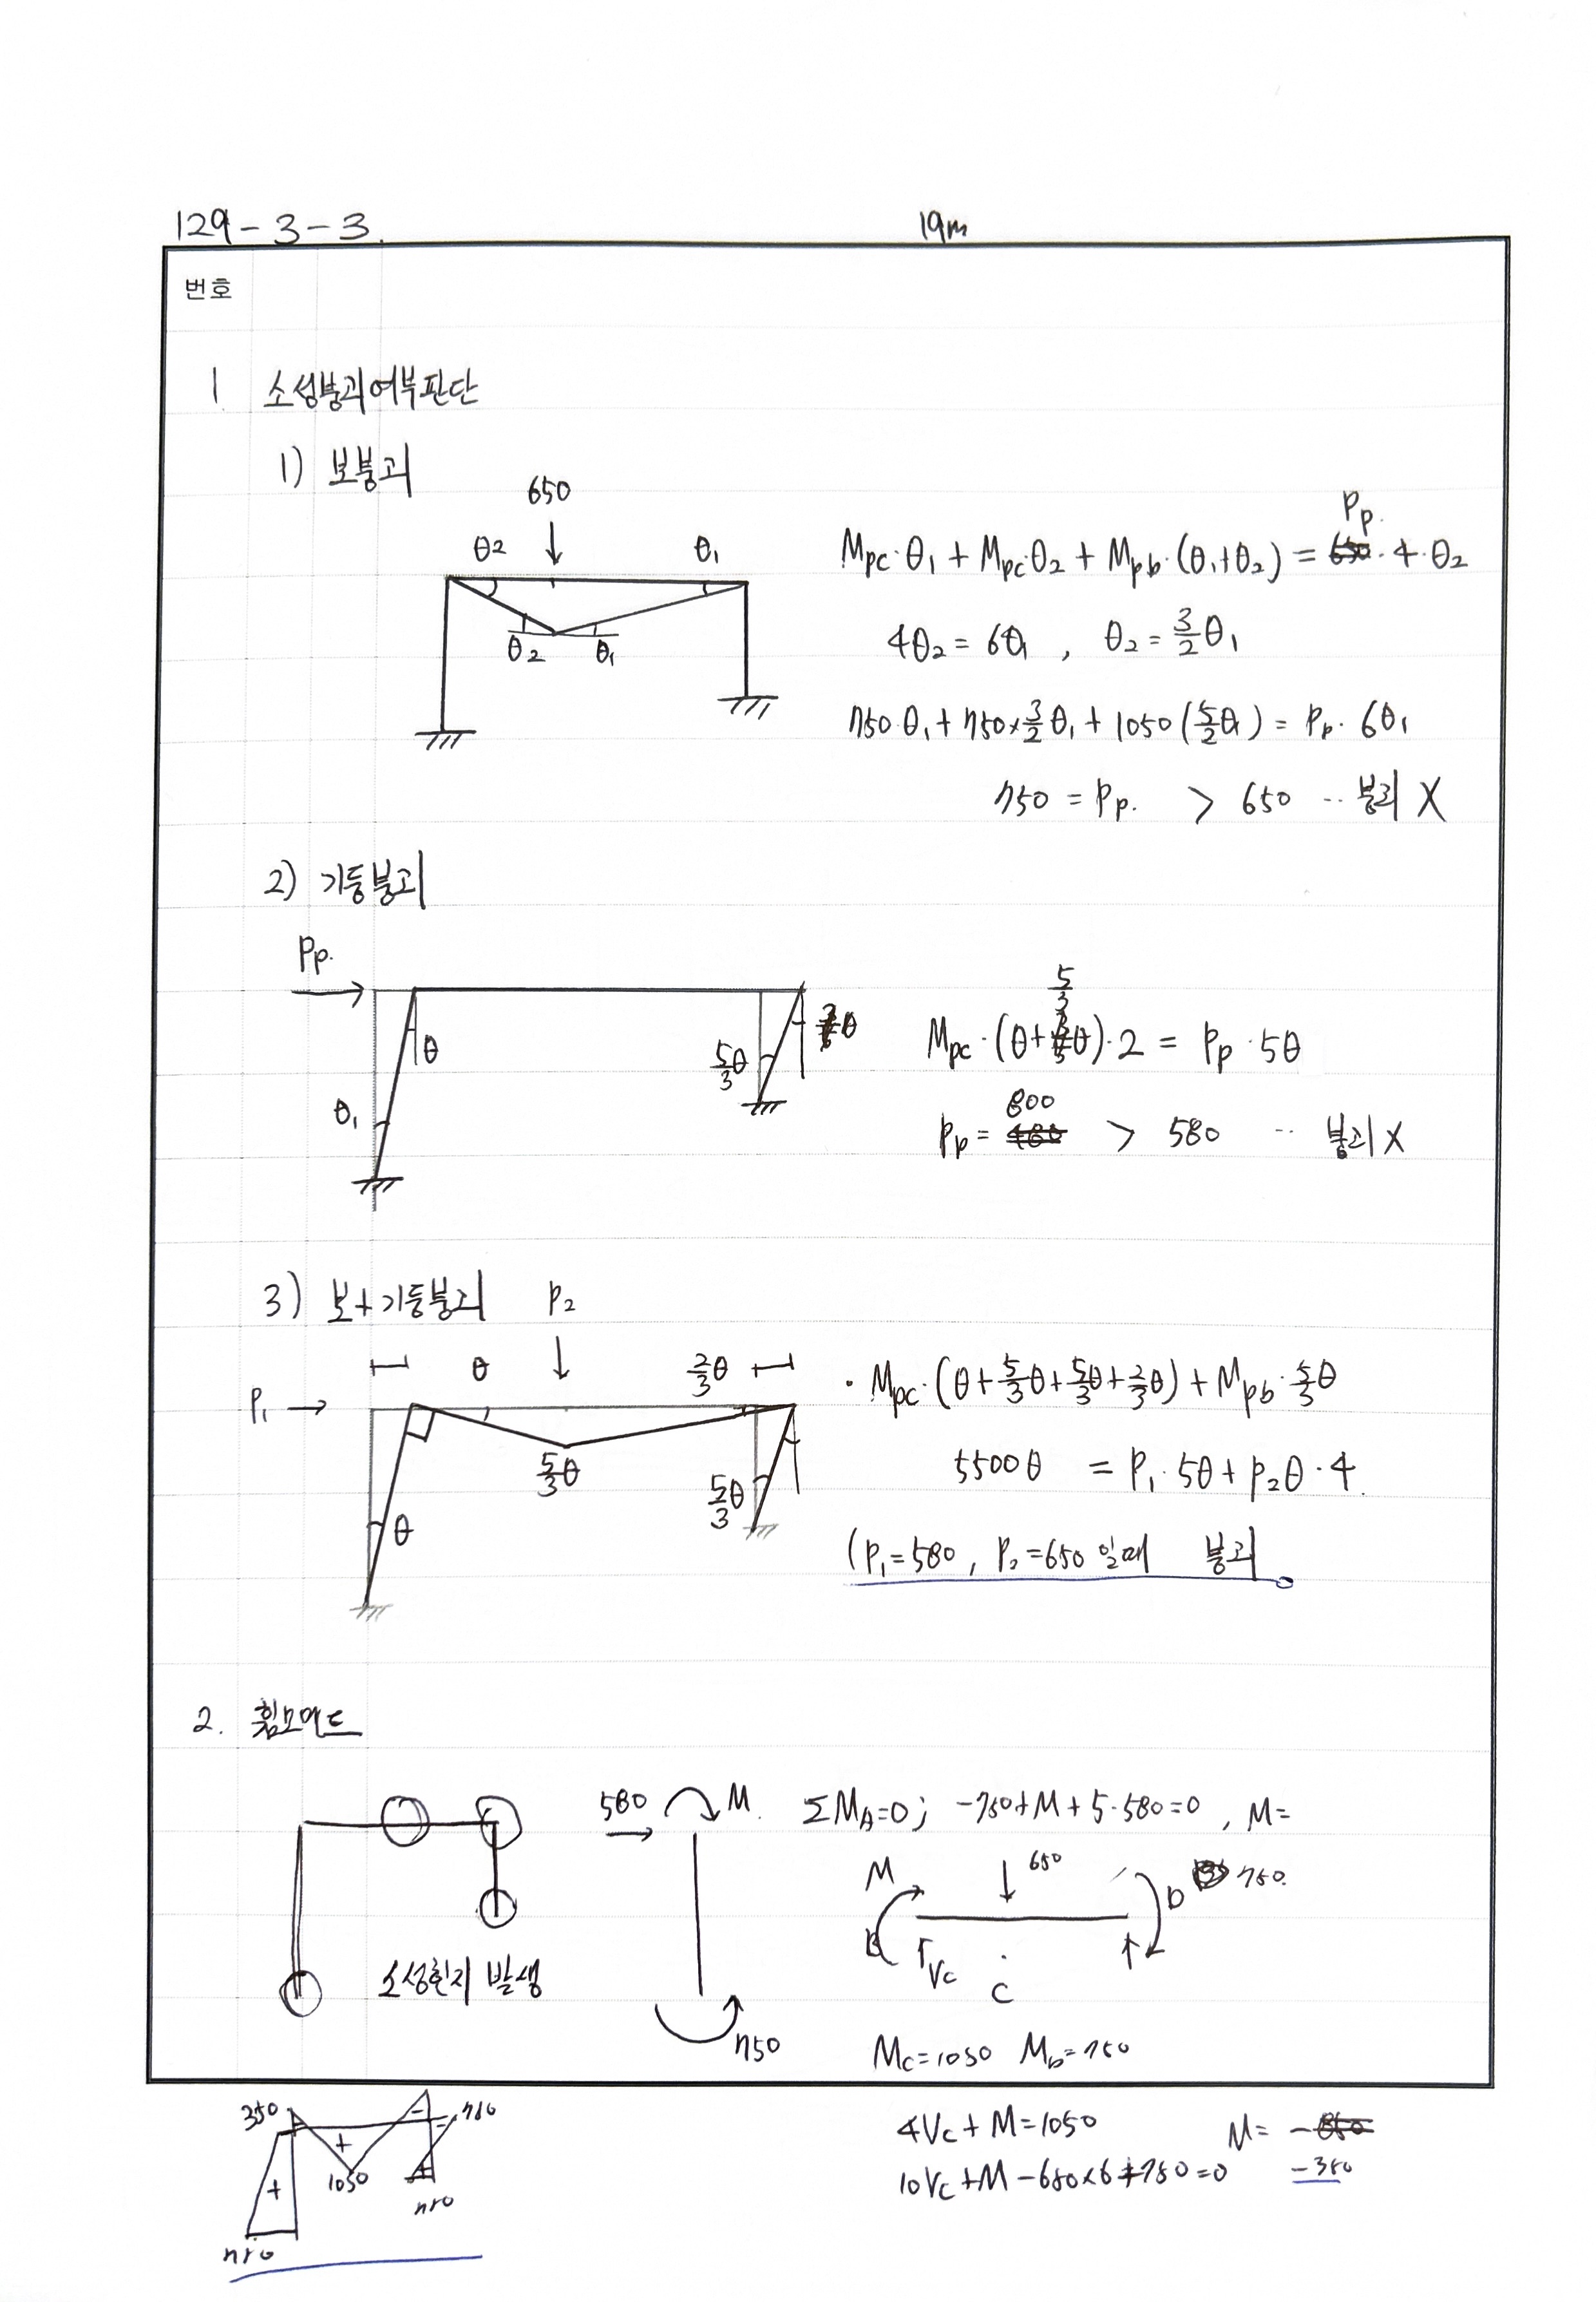 129-3-3.
19m
번호
1 소성붕괴여부판단
1) 보붕괴
650
θ2 θ1
θ2 θ1
Mpc·θ1 + Mpc·θ2 + Mpb·(θ1+θ2) = Pp·4·θ2
4θ2 = 6θ1 , θ2 = 3/2 θ1
750·θ1 + 750×3/2 θ1 + 1050 (5/2 θ1) = Pp· 6θ1
750 = Pp. > 650 ‥ 붕괴 X
2) 기둥붕괴
Pp.
θ 5/3 θ θ
θ1
Mpc·(θ+5/3 θ)·2 = Pp·5θ
Pp = 800 > 580 ‥ 붕괴 X
3) 보+기둥붕괴 P2
θ 2/3 θ
P1 →
5/3 θ 5/3 θ
θ
· Mpc·(θ+5/3 θ+5/3 θ+2/3 θ) + Mpb·5/3 θ
5500θ = P1·5θ+P2θ·4
(P1=580, P2=650 일때 붕괴
2. 휨모멘트
580 M.
ΣMA=0; -750+M+5·580=0 , M=
M 650 D 750.
B Vc C
소성힌지 발생
750
Mc=1050 MD=750
350 750
+ + - -
1050
750
750
4Vc+M=1050 M= -350
10Vc+M-650×6+750=0